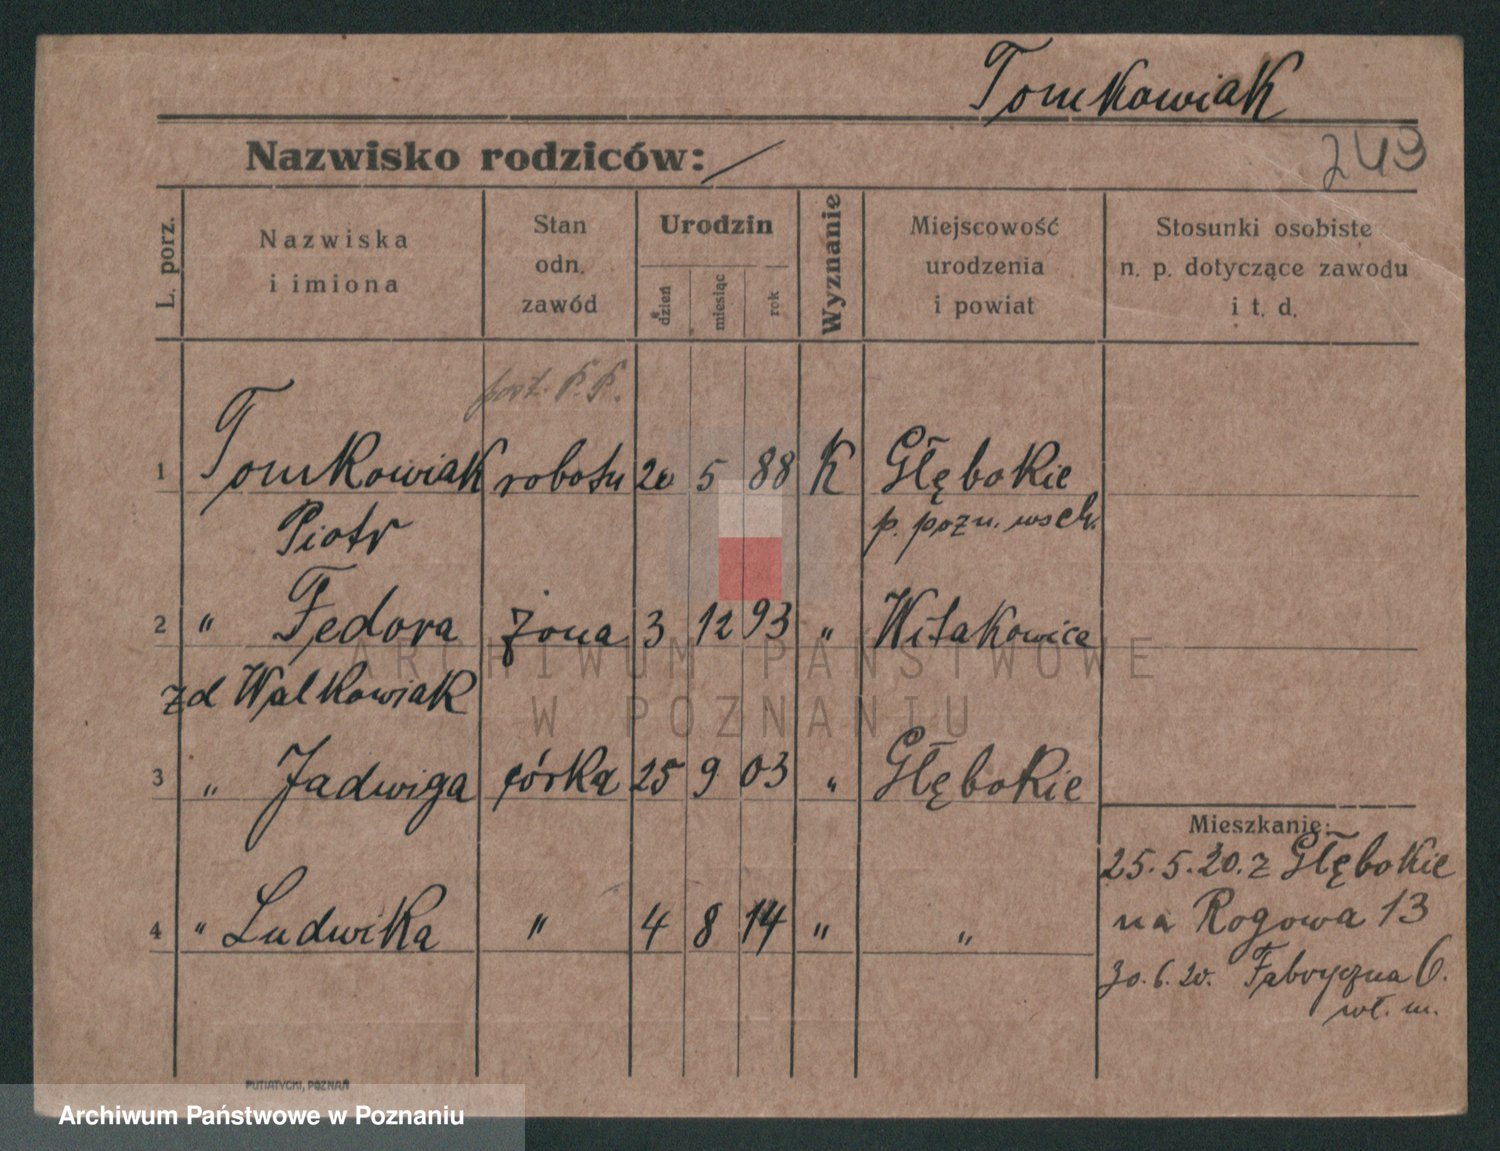 Tomkowiak
Nazwisko rodziców: /
243
L. porz.
Nazwiska
i imiona
Stan
odn.
zawód
Urodzin
dzień
miesiąc
rok
Wyznanie
Miejscowość
urodzenia
i powiat
Stosunki osobiste
n. p. dotyczące zawodu
i t. d.
post. P. P.
1 Tomkowiak robotn 20 5 88 K Głębokie
Piotr p. pozn. wsch.
2 " Fedora żona 3 12 93 " Witakowice
zd Walkowiak
3 " Jadwiga córka 25 9 03 " Głębokie
Mieszkanie:
25.5.20. z Głębokie
na Rogowa 13
4 " Ludwika " 4 8 14 " "
30.6.20. Fabryczna 6.
wł. m.
PUTIATYCKI, POZNAŃ
ARCHIWUM PAŃSTWOWE
W POZNANIU
Archiwum Państwowe w Poznaniu